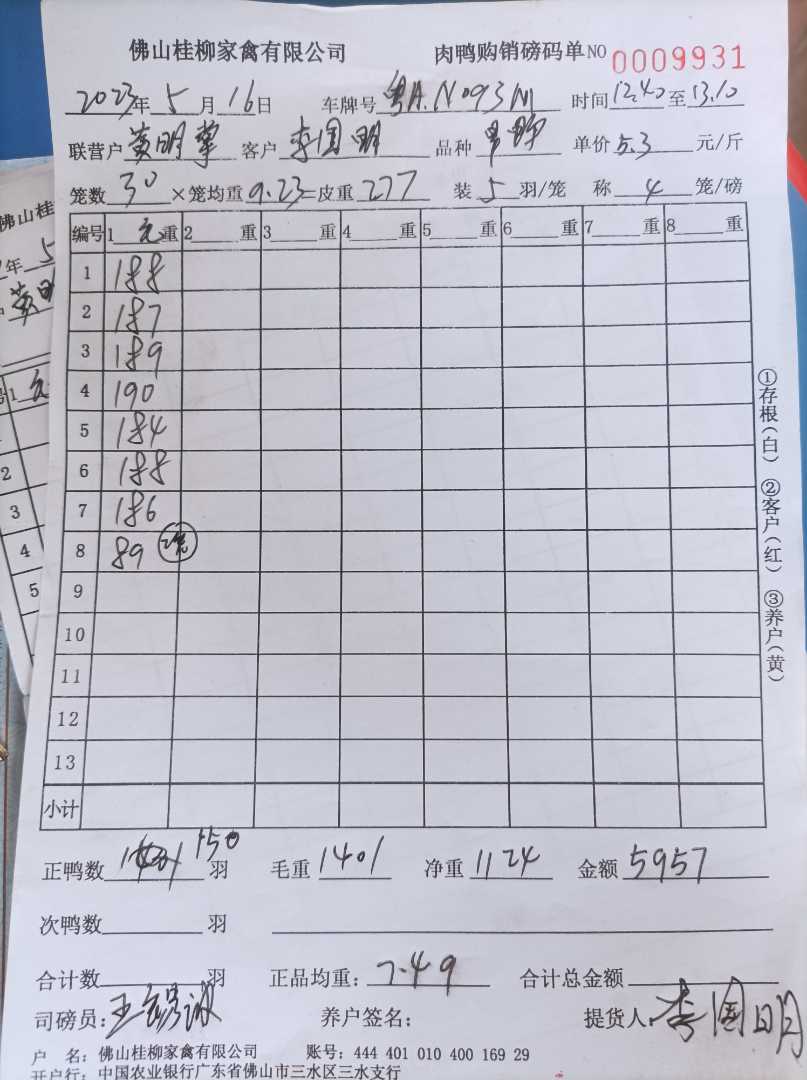 佛山桂柳家禽有限公司 肉鸭购销磅码单NO 0009931
2023年 5 月 16日 车牌号 粤A.N093M 时间 12.40 至 13.10
联营户 黄明 客户 李国明 品种 单价 5.3 元/斤
笼数 30 ×笼均重 9.23 =皮重 277 装 5 羽/笼 称 4 笼/磅
编号 1 毛重 2 重 3 重 4 重 5 重 6 重 7 重 8 重
1 188
2 187
3 189
4 190
5 184
6 188
7 186
8 89
9
10
11
12
13
小计
正鸭数 150 羽 毛重 1401 净重 1124 金额 5957
次鸭数 羽
合计数 羽 正品均重: 7.49 合计总金额
司磅员: 王 养户签名: 提货人: 李国明
户 名: 佛山桂柳家禽有限公司 账号: 444 401 010 400 169 29
开户行: 中国农业银行广东省佛山市三水区三水支行
①存根(白) ②客户(红) ③养户(黄)
佛山桂
年 5
黄明
1
2
3
4
5